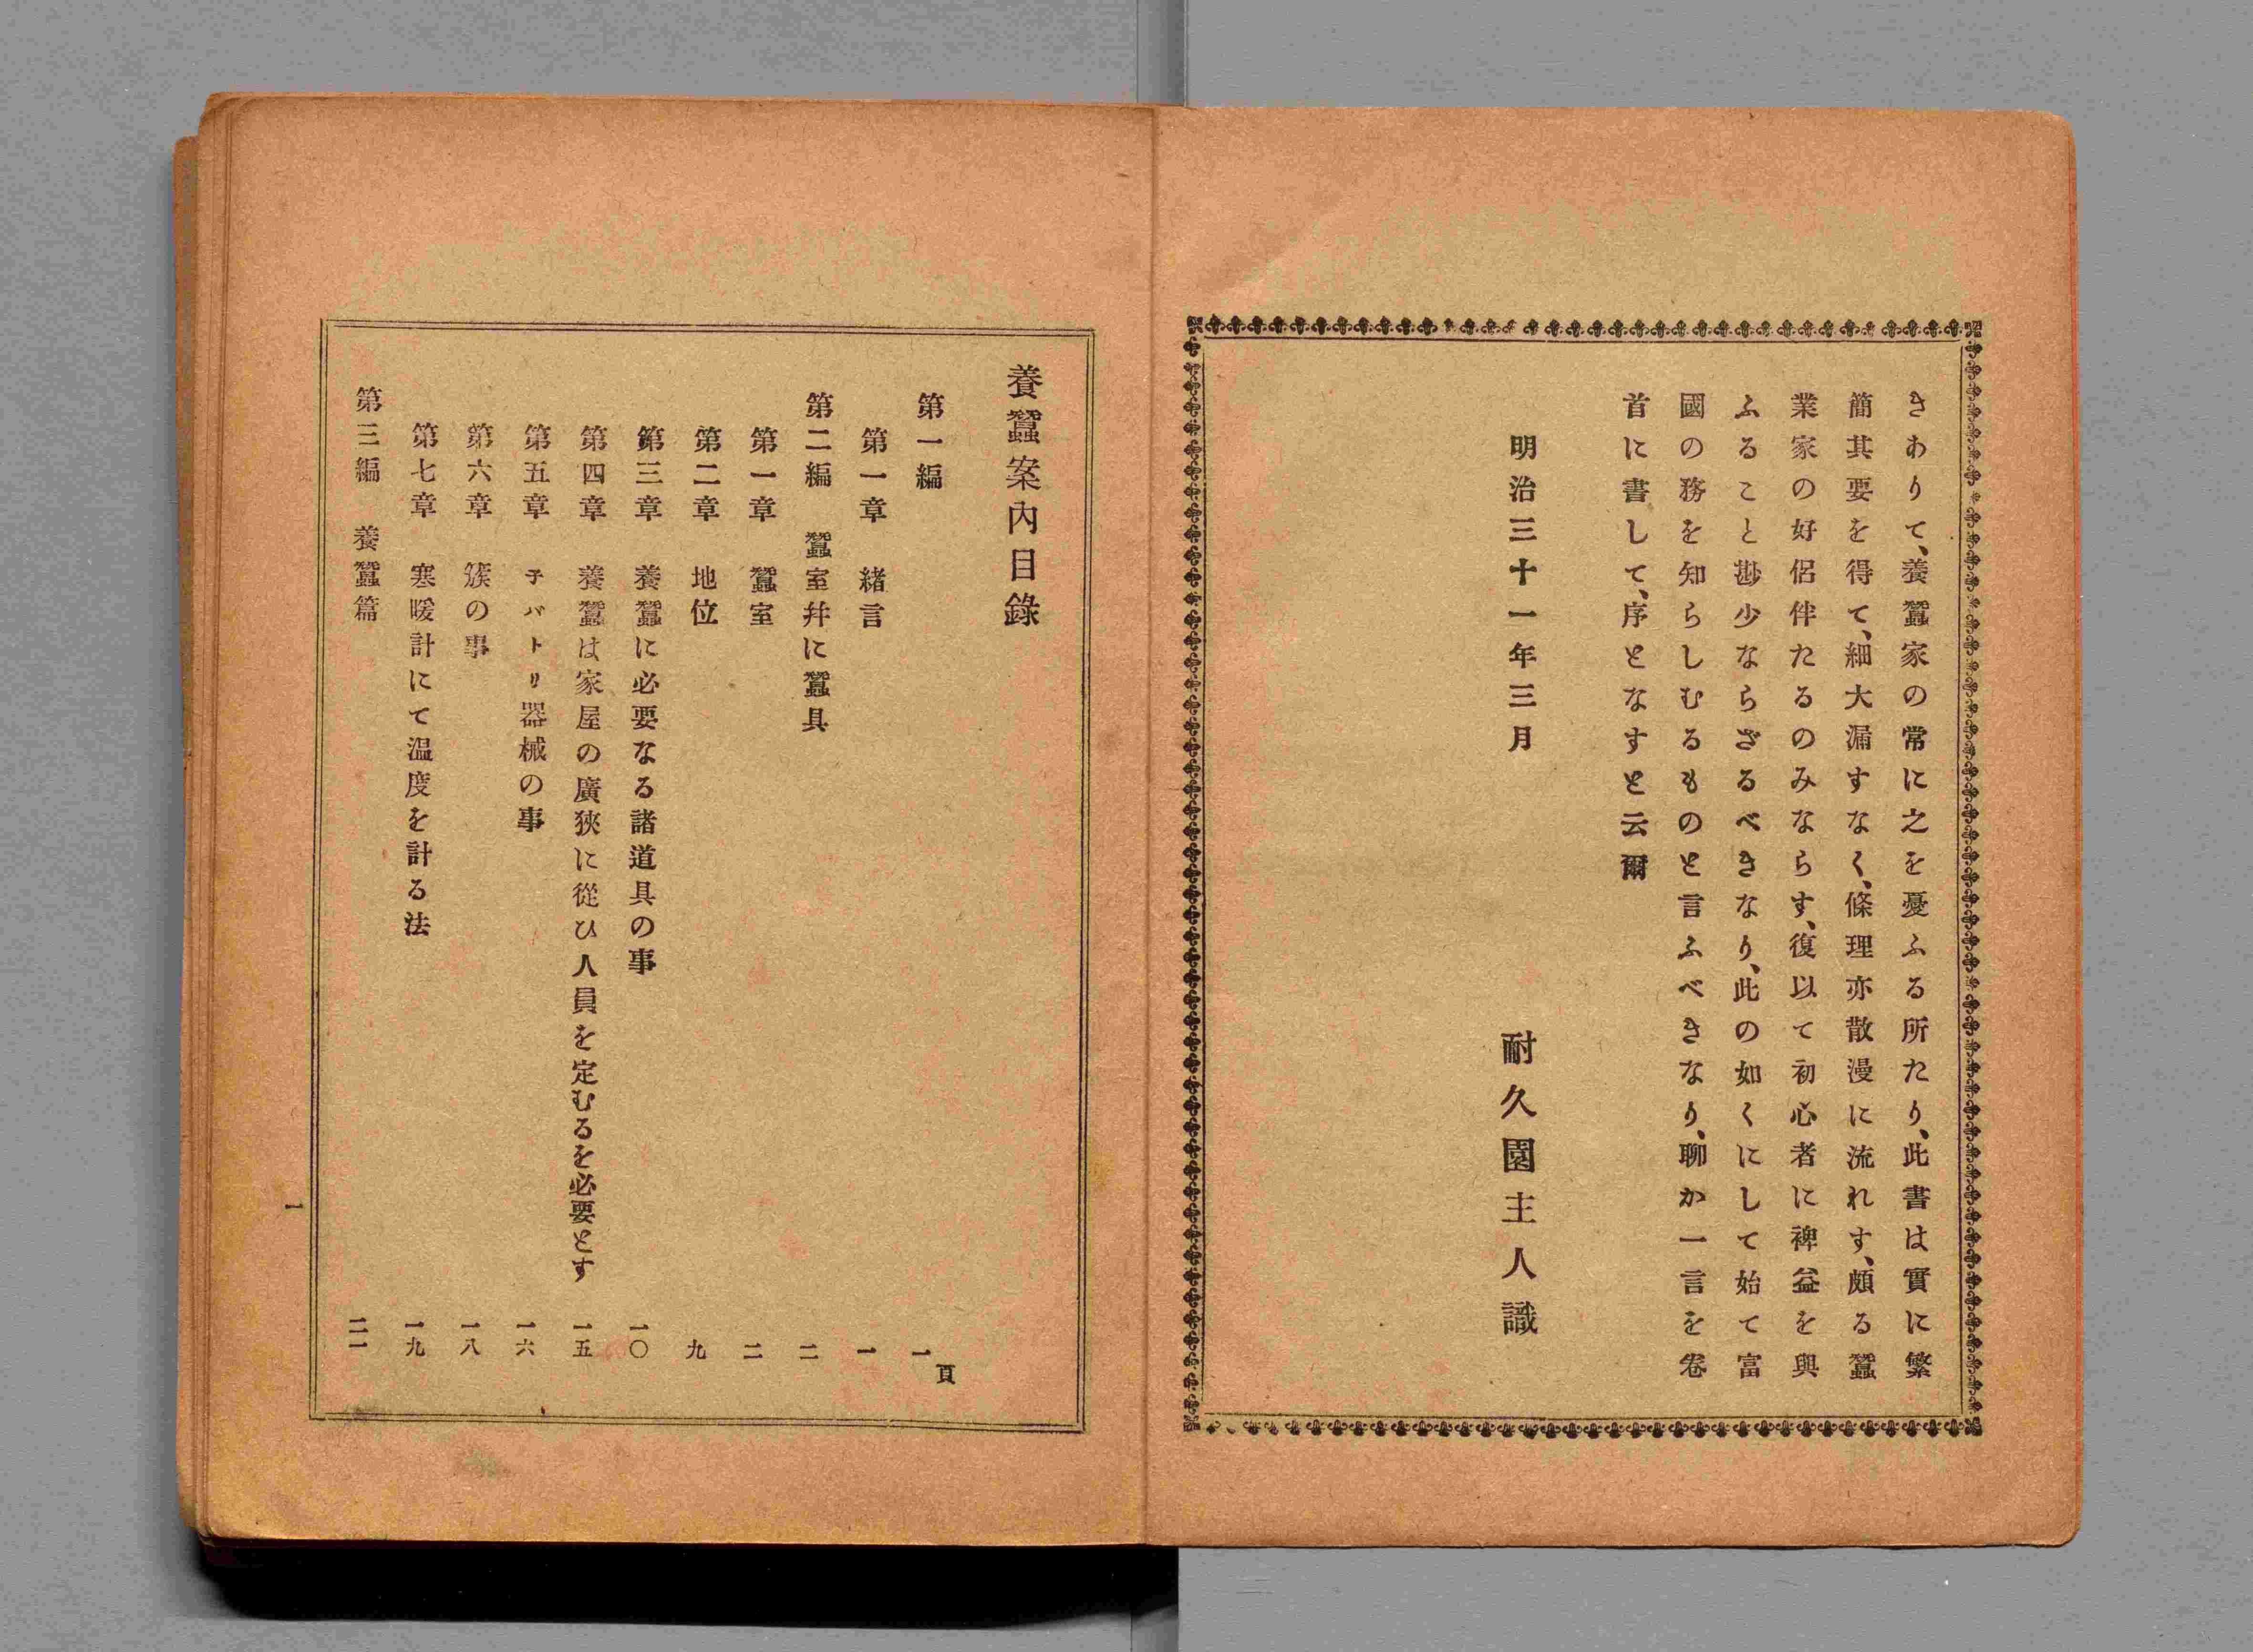 きありて、養蠶家の常に之を憂ふる所たり、此書は實に繁
簡其要を得て、細大漏すなく、條理亦散漫に流れす、頗る蠶
業家の好侶伴たるのみならす、復以て初心者に裨益を與
ふること尠少ならざるべきなり、此の如くにして始て富
國の務を知らしむるものと言ふべきなり、聊か一言を卷
首に書して、序となすと云爾
明治三十一年三月
耐久園主人識
養蠶案內目錄
頁
第一編 一
第一章 緖言 一
第二編 蠶室幷に蠶具 二
第一章 蠶室 二
第二章 地位 九
第三章 養蠶に必要なる諸道具の事 一〇
第四章 養蠶は家屋の廣狹に從ひ人員を定むるを必要とす 一五
第五章 子バトリ器械の事 一六
第六章 簇の事 一八
第七章 寒暖計にて溫度を計る法 一九
第三編 養蠶篇 二一
一